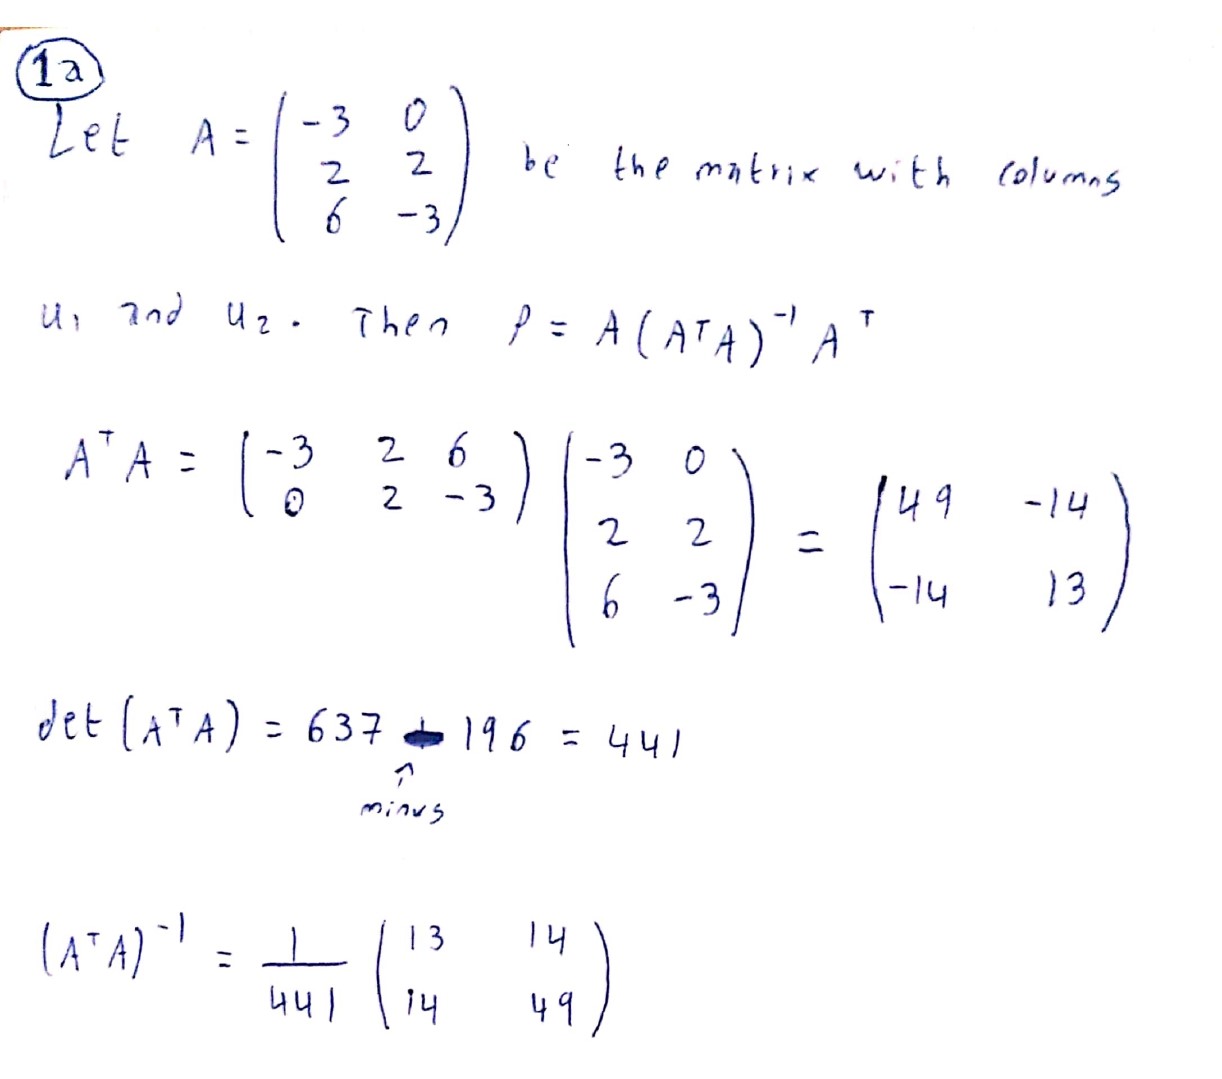 1a
Let A = (-3 0; 2 2; 6 -3) be the matrix with columns
u₁ and u₂. Then P = A(AᵀA)⁻¹Aᵀ
AᵀA = (-3 2 6; 0 2 -3) (-3 0; 2 2; 6 -3) = (49 -14; -14 13)
det(AᵀA) = 637 - 196 = 441
↑
minus
(AᵀA)⁻¹ = 1/441 (13 14; 14 49)